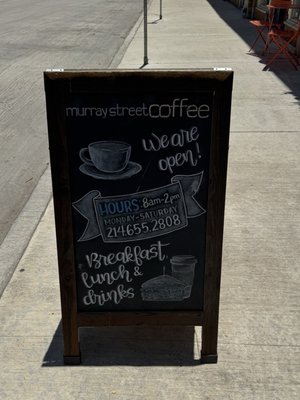 murray street Coffee
We are
open!
HOURS: 8am-2pm
MONDAY-SATURDAY
214.655.2808
Breakfast,
lunch &
drinks